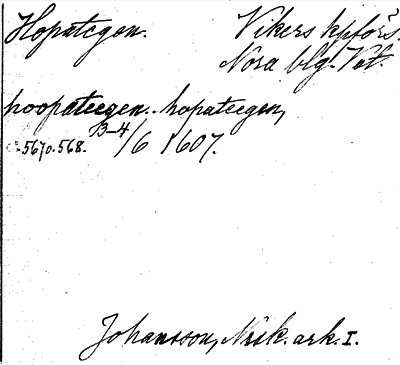 Hopategen. Vikers kpförs.
Nora blg. Vstl.
hoopateegen. hopateegen,
5670.568. 3-4/6 1607.
Johansson, Nask. ark. I.